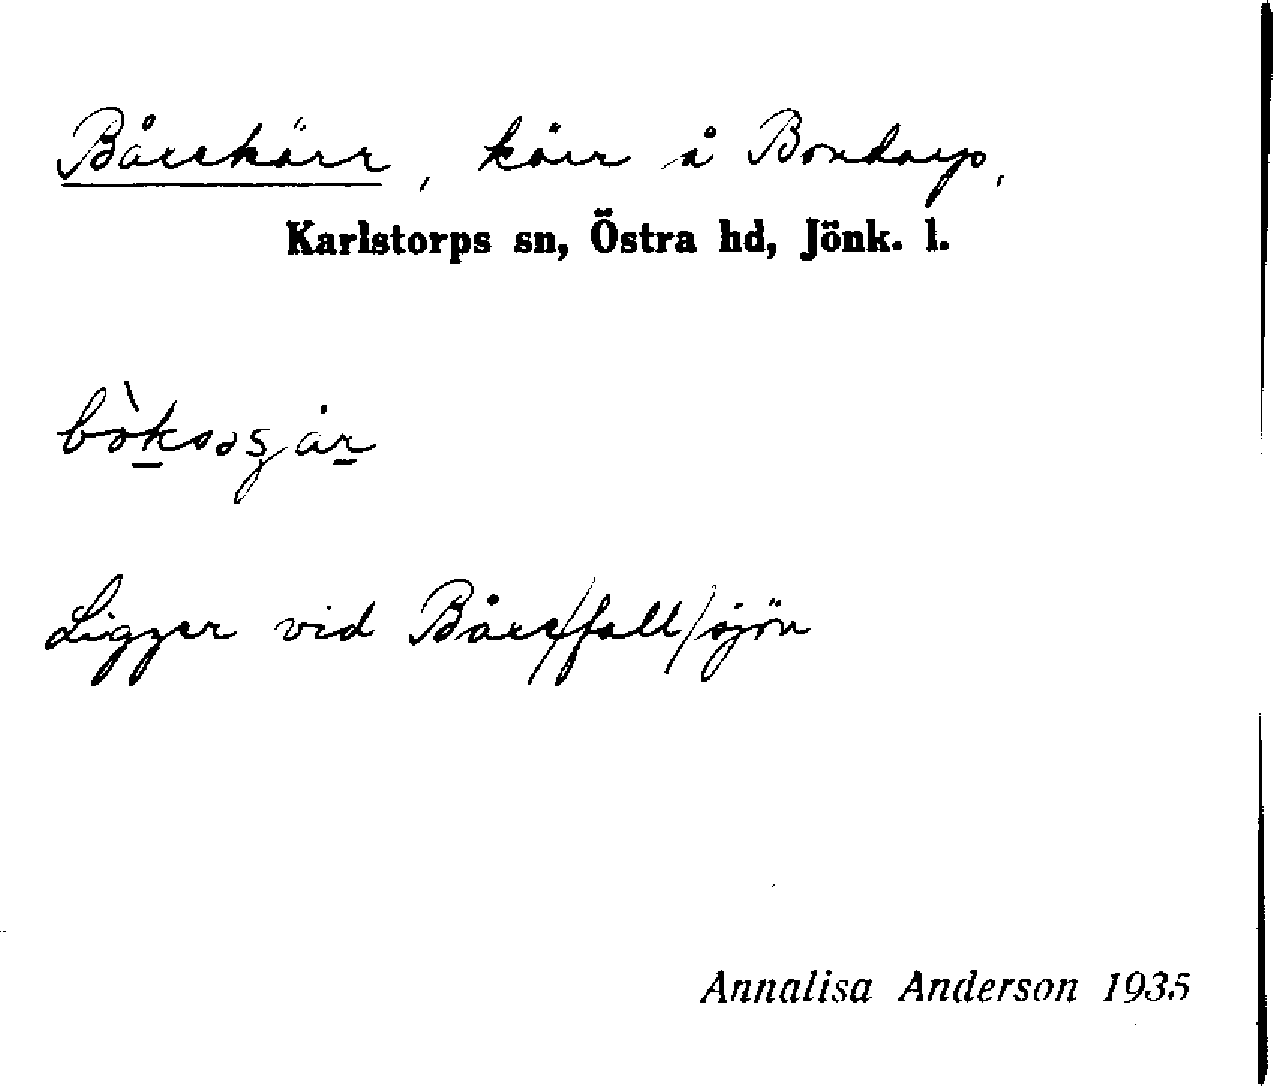 Båxekärr, kärr å Bondarp,
Karlstorps sn, Östra hd, Jönk. l.
Ligger vid Båxe/fall/sjön
Annalisa Anderson 1935